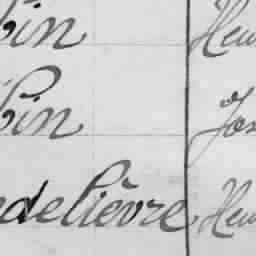 bin Hen
bin Jos
delièvre Hen